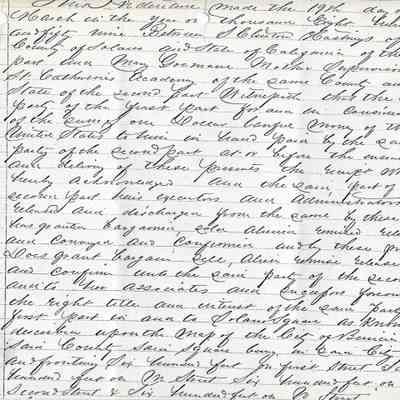 This Indenture made the 19th day
March in the year one thousand Eight hun
and fifty nine Between S Clinton Hastings of
County of Solano and State of California of the
part and Mary Goemaere Mother Superioress
St Catharines Academy of the same County and
State of the second part Witnesseth that the
party of the first part for and in conside
of the sum of one Dollar lawful money of th
United States to him in hand paid by the sa
party of the second part at or before the enseal
and delivery of these presents the receipt wh
hereby acknowledged and the said part of
second part heirs executors and administrators
released and discharged from the same by these
has granted bargained, sold aliened remised rele
and conveyed and confirmed and by these pr
Does grant bargain Sell, alien remise release
and confirm unto the said party of the secon
and to her associates and successors forever
the right title and interest of the said party
first part in and to Solano Square as known
described upon the map of the City of Benicia
said County said square being in said City
and fronting Six hundred feet on first Street Six
hundred feet on M Street Six hundred feet on
Second Street & Six hundred feet on N Street